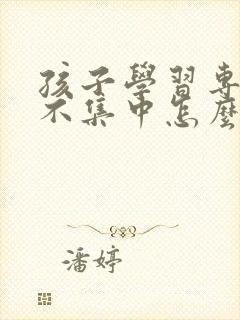 孩子學習專
不集中怎麼
潘婷